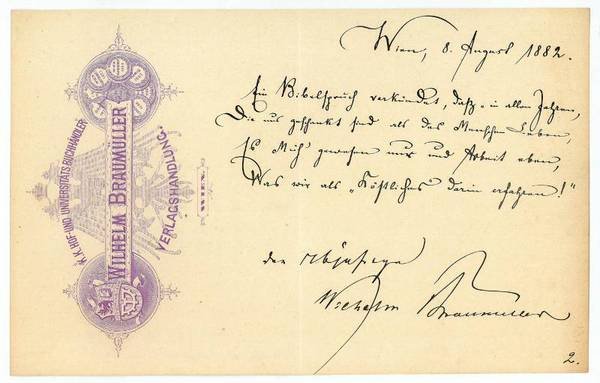 K.K. HOF- UND UNIVERSITÄTS BUCHHÄNDLER
WILHELM BRAUMÜLLER
VERLAGSHANDLUNG
WIEN
Wien, 8. August 1882.
Ein Bibelspruch verkündet, daß in allen Jahren,
Die uns geschenkt sind als des Menschen Leben,
Es Müh' gewesen nur und Arbeit eben,
Was wir als „Köstliches" darin erfahren!"
der
Wilhelm Braumüller
2.